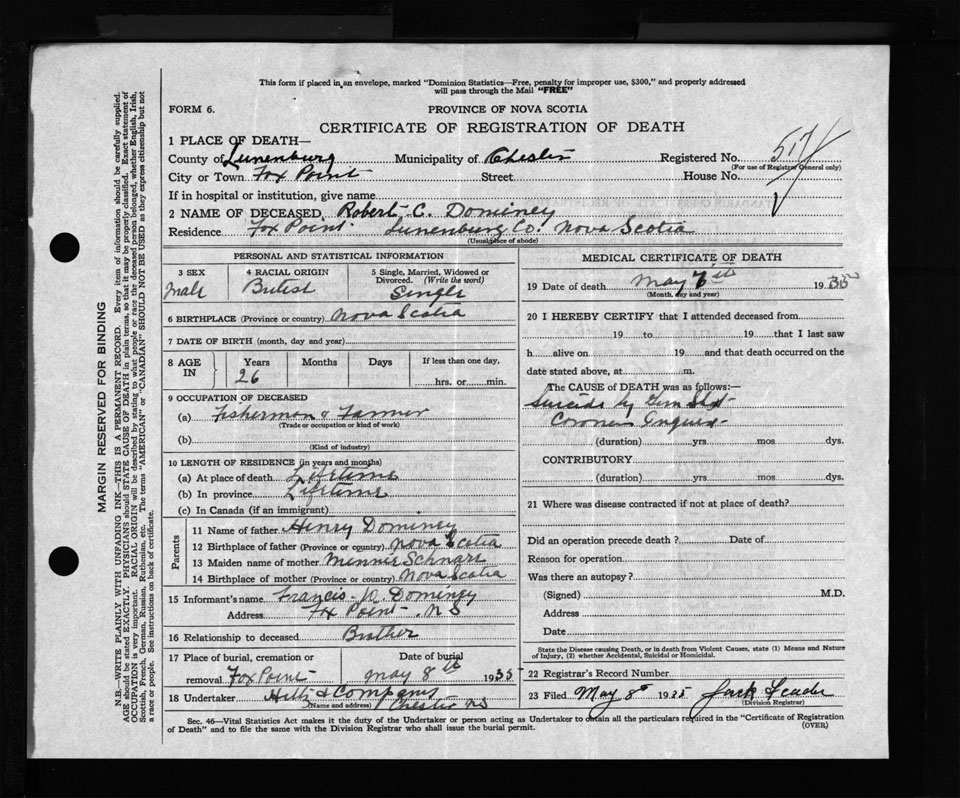 This form if placed in an envelope, marked "Dominion Statistics—Free, penalty for improper use, $300," and properly addressed
will pass through the Mail "FREE"
FORM 6.
PROVINCE OF NOVA SCOTIA
CERTIFICATE OF REGISTRATION OF DEATH
1 PLACE OF DEATH—
County of Lunenburg Municipality of Chester Registered No.
(For use of Registrar General only)
City or Town Fox Point Street House No.
If in hospital or institution, give name
2 NAME OF DECEASED Robert C. Dominey
Residence Fox Point Lunenburg Co. Nova Scotia
(Usual place of abode)
PERSONAL AND STATISTICAL INFORMATION
3 SEX Male
4 RACIAL ORIGIN British
5 Single, Married, Widowed or
Divorced. (Write the word)
Single
6 BIRTHPLACE (Province or country) Nova Scotia
7 DATE OF BIRTH (month, day and year)
8 AGE IN Years 26 Months Days If less than one day,
hrs. or min.
9 OCCUPATION OF DECEASED
(a) Fisherman & Farmer
(Trade or occupation or kind of work)
(b)
(Kind of industry)
10 LENGTH OF RESIDENCE (in years and months)
(a) At place of death Lifetime
(b) In province Lifetime
(c) In Canada (if an immigrant)
Parents
11 Name of father Henry Dominey
12 Birthplace of father (Province or country) Nova Scotia
13 Maiden name of mother Minnie Schnare
14 Birthplace of mother (Province or country) Nova Scotia
15 Informant's name Francis W Dominey
Address Fox Point N S
16 Relationship to deceased Brother
17 Place of burial, cremation or Date of burial
removal Fox Point May 8th 1935
18 Undertaker Hilts & Company
(Name and address) Chester NS
MEDICAL CERTIFICATE OF DEATH
19 Date of death May 7th 1935
(Month, day and year)
20 I HEREBY CERTIFY that I attended deceased from
19 to 19 that I last saw
h alive on 19 and that death occurred on the
date stated above, at m.
The CAUSE of DEATH was as follows:—
Suicide by Gun Shot
Coroners
(duration) yrs. mos dys.
CONTRIBUTORY
(duration) yrs mos dys.
21 Where was disease contracted if not at place of death?
Did an operation precede death? Date of
Reason for operation
Was there an autopsy?
(Signed) M.D.
Address
Date
State the Disease causing Death, or in death from Violent Causes, state (1) Means and Nature
of Injury, (2) whether Accidental, Suicidal or Homicidal.
22 Registrar's Record Number
23 Filed May 8th 1935 Jack
(Division Registrar)
Sec. 46—Vital Statistics Act makes it the duty of the Undertaker or person acting as Undertaker to obtain all the particulars required in the "Certificate of Registration
of Death" and to file the same with the Division Registrar who shall issue the burial permit.
(OVER)
MARGIN RESERVED FOR BINDING
N.B.—WRITE PLAINLY WITH UNFADING INK—THIS IS A PERMANENT RECORD. Every item of information should be carefully supplied.
AGE should be stated EXACTLY. PHYSICIANS should STATE CAUSE OF DEATH in plain terms, so that it may be properly classified. Exact statement of
OCCUPATION is very important. RACIAL ORIGIN will be described by stating to what people or race the deceased person belonged, whether English, Irish,
Scottish, French, German, Russian, Ruthenian, etc. The terms "AMERICAN" or "CANADIAN" SHOULD NOT BE USED as they express citizenship but not
a race or people. See instructions on back of certificate.